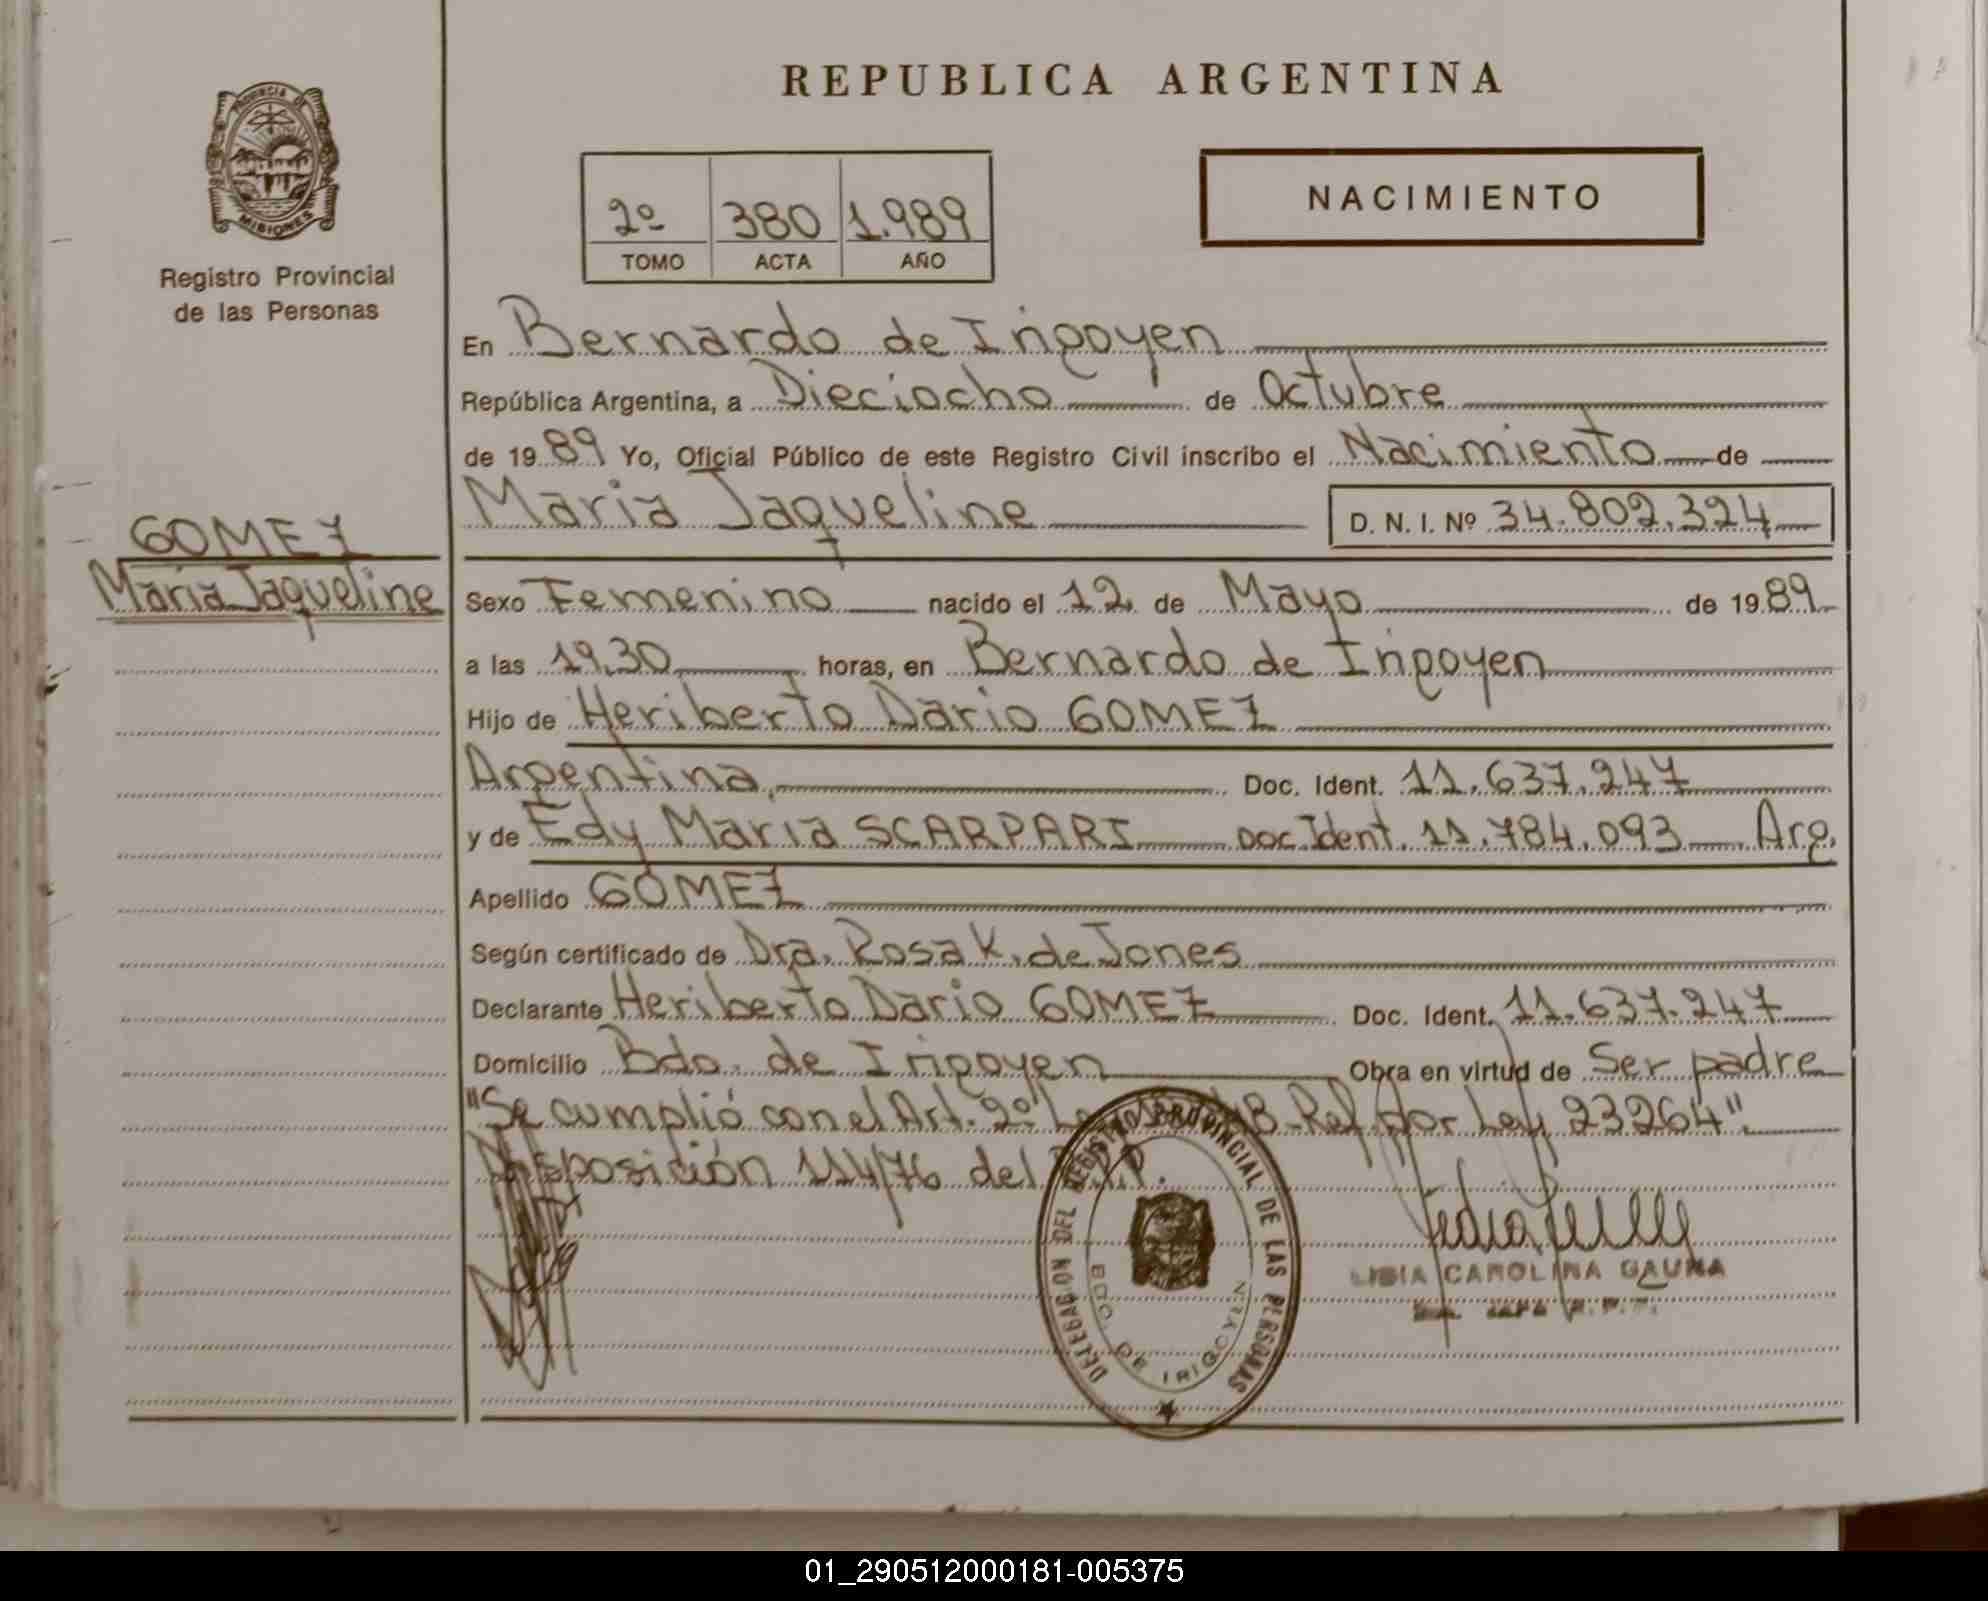 REPUBLICA ARGENTINA
PROVINCIA DE
MISIONES
Registro Provincial
de las Personas
NACIMIENTO
2º 380 1.989
TOMO ACTA AÑO
En Bernardo de Irigoyen
República Argentina, a Dieciocho de Octubre
de 1989 Yo, Oficial Público de este Registro Civil inscribo el Nacimiento de
Maria Jaqueline D. N. I. Nº 34.802.324
GOMEZ
Maria Jaqueline
Sexo Femenino nacido el 12 de Mayo de 1989
a las 19,30 horas, en Bernardo de Irigoyen
Hijo de Heriberto Dario GOMEZ
Argentina, Doc. Ident. 11.637.247
y de Edy Maria SCARPARI Doc Ident. 11.784.093 Arg.
Apellido GOMEZ
Según certificado de Dra. Rosa K. de Jones
Declarante Heriberto Dario GOMEZ Doc. Ident. 11.637.247
Domicilio Bdo. de Irigoyen Obra en virtud de Ser padre
"Se cumplió con el Art. 2º Ref por Ley 23264".
Disposición 114/76 del R.P.P.
DELEGACION DEL REGISTRO PROVINCIAL DE LAS PERSONAS
BDO. DE IRIGOYEN
LIBIA CAROLINA GAUNA
01_290512000181-005375